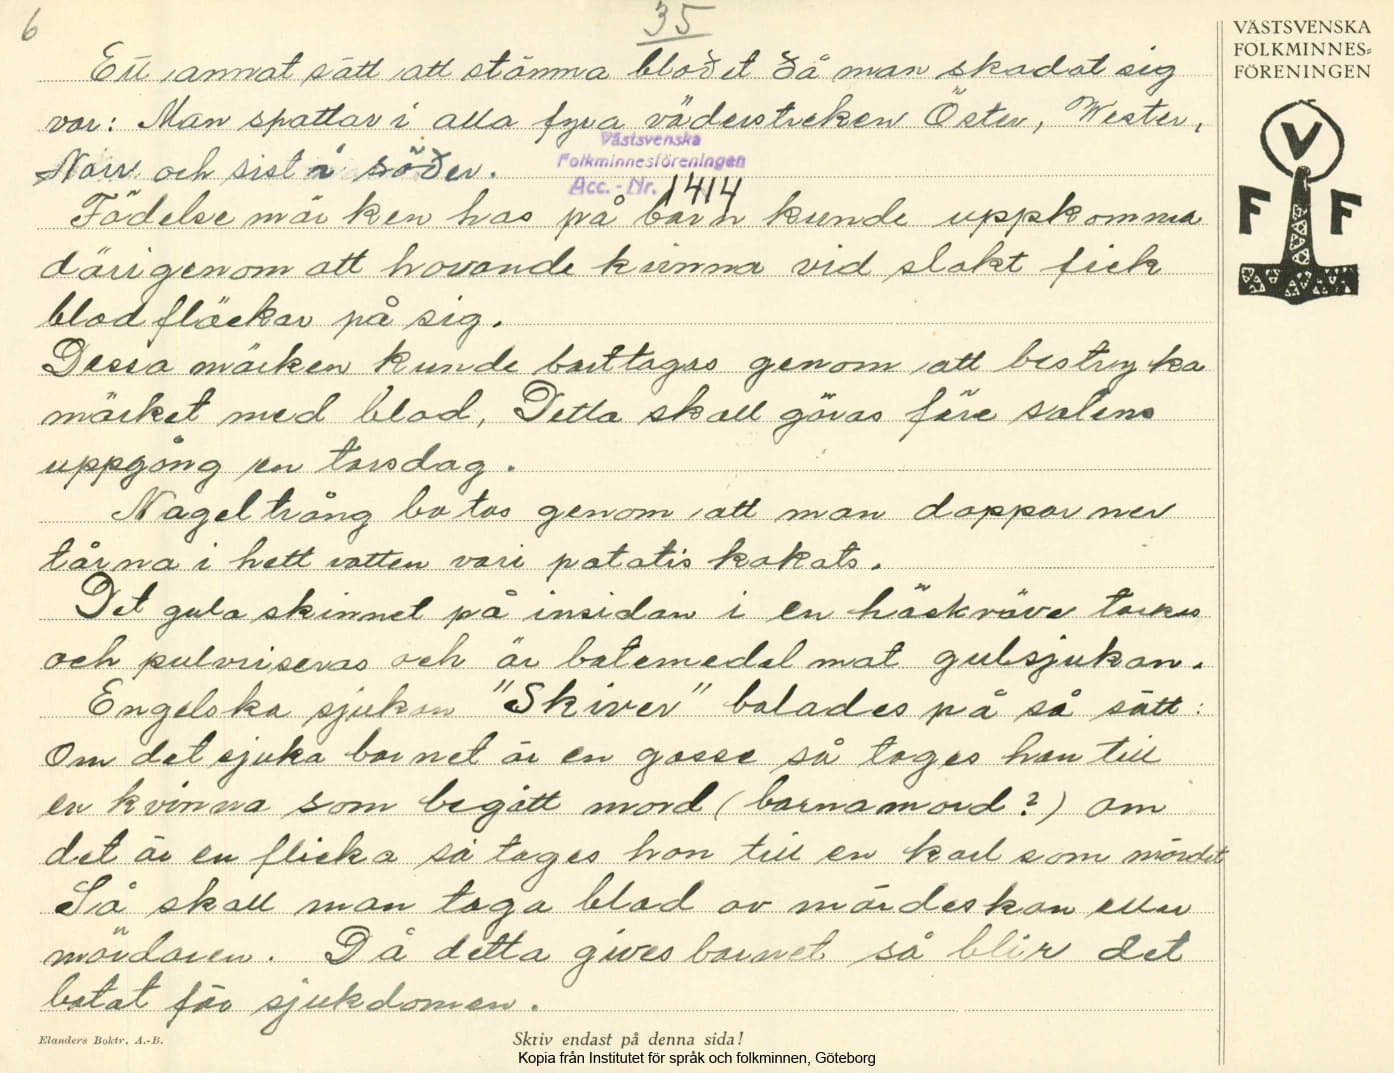 6
35
VÄSTSVENSKA
FOLKMINNES-
FÖRENINGEN
V
F F
Ett annat sätt att stämma blodet då man skadat sig
var: Man spottar i alla fyra väderstreken Öster, Wester,
Norr och sist i söder.
Västsvenska
Folkminnesföreningen
Acc. - Nr. 1414
Födelsemärken hos på barn kunde uppkomma
därigenom att havande kvinna vid slakt fick
blodfläckar på sig.
Dessa märken kunde borttagas genom att bestryka
märket med blod, Detta skall göras före solens
uppgång en torsdag.
Nageltrång botas genom att man doppar ner
tårna i hett vatten vari potatis kokats.
Det gula skinnet på insidan i en höskräve torkas
och pulvriseras och är botemedel mot gulsjukan.
Engelska sjukan "Skiver" botades på så sätt:
Om det sjuka barnet är en gosse så tages han till
en kvinna som begått mord (barnamord?) om
det är en flicka så tages hon till en karl som mördat
Så skall man taga blod av mörderskan eller
mördaren. Då detta gives barnet så blir det
botat för sjukdomen.
Elanders Boktr. A.-B.
Skriv endast på denna sida!
Kopia från Institutet för språk och folkminnen, Göteborg